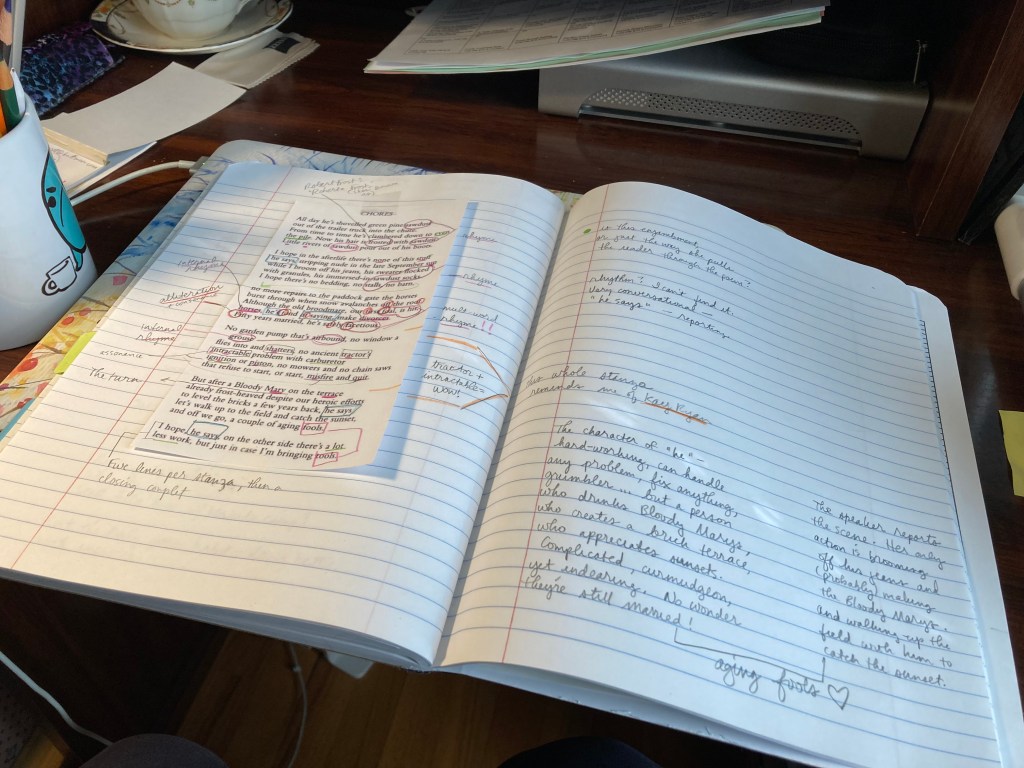 CHORES
All day he's shoveled green pine sawdust
out of the trailer truck into the chute.
From time to time he's clambered down to even
the pile. Now his hair is frosted with sawdust.
Little rivers of sawdust pour out of his boots.
I hope in the afterlife there's none of this stuff
he says, stripping nude in the late September sun
while I broom off his jeans, his sweater flocked
with granules, his immersed-in-sawdust socks.
I hope there's no bedding, no stalls, no barn,
no more repairs to the paddock gate the horses
burst through when snow avalanches off the roof.
Although the old broodmare, our first foal, is his,
horses, he's fond of saying, make divorces.
Fifty years married, he's safely facetious.
No garden pump that's airbound, no window a
grouse
flies into and shatters, no ancient tractor's
intractable problem with carburetor
ignition or piston, no mowers and no chain saws
that refuse to start, or start, misfire and quit.
But after a Bloody Mary on the terrace
already frost-heaved despite our heroic efforts
to level the bricks a few years back, he says
let's walk up to the field and catch the sunset
and off we go, a couple of aging fools.
I hope, he says, on the other side there's a lot
less work, but just in case I'm bringing tools.
rhyme
rhyme
multi word
rhyme!!
tractor +
intractable =
wow!
alliteration
internal
rhyme
assonance
The turn
Five lines per stanza, then a
closing couplet
is this enjambment
or just the way she pulls
the reader through the poem?
rhythm? I can't find it.
Very conversational —
"he says" — reporting
This whole stanza
reminds me of Kay Ryan
The character of "he" —
hard-working, can handle
any problem, fix anything,
grumbler... but a person
who drinks Bloody Marys,
who creates a brick terrace,
who appreciates sunsets.
Complicated, curmudgeon,
yet endearing. No wonder
they're still married!
The speaker reports
the scene. Her only
action is brooming
off his jeans and
(probably) making
the Bloody Marys.
and walking up the
field with him to
catch the sunset.
aging fools ♡